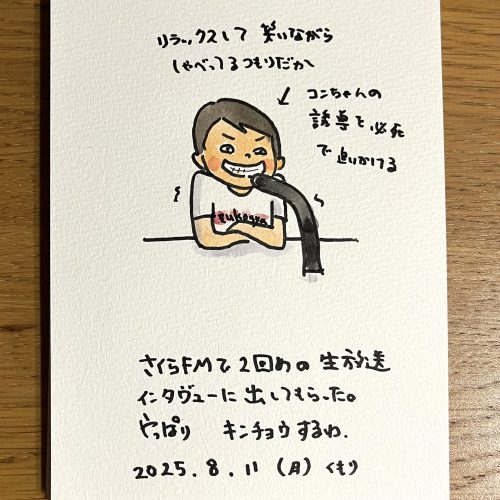 リラックスして 笑いながら
しゃべってるつもりだが
← コンちゃんの
誘導を必死
で追いかける
さくらFMで2回めの生放送
インタヴューに出してもらった。
やっぱり キンチョウするわ.
2025.8.11 (月) くもり